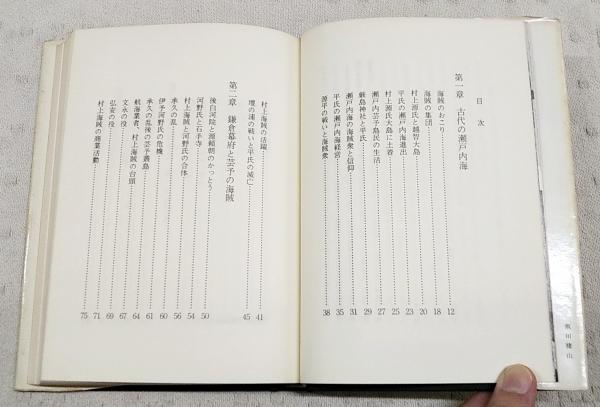 目次
第一章 古代の瀬戸内海
海賊のおこり 12
海賊の集団 18
村上源氏と越智大島 20
平氏の瀬戸内海進出 23
村上源氏大島に土着 25
瀬戸内芸予島民の生活 27
厳島神社と平氏 29
瀬戸内海の海賊衆と信仰 31
平氏の瀬戸内海経営 35
源平の戦いと海賊衆 38
村上海賊の活躍 41
壇の浦の戦いと平氏の滅亡 45
第二章 鎌倉幕府と芸予の海賊
後白河院と源頼朝のかっとう 50
河野氏と石手寺 54
村上海賊と河野氏の合体 56
承久の乱 60
伊予河野氏の危機 61
承久の乱後の芸予叢島 64
航海業者、村上海賊の台頭 67
文永の役 69
弘安の役 71
村上海賊の商業活動 75